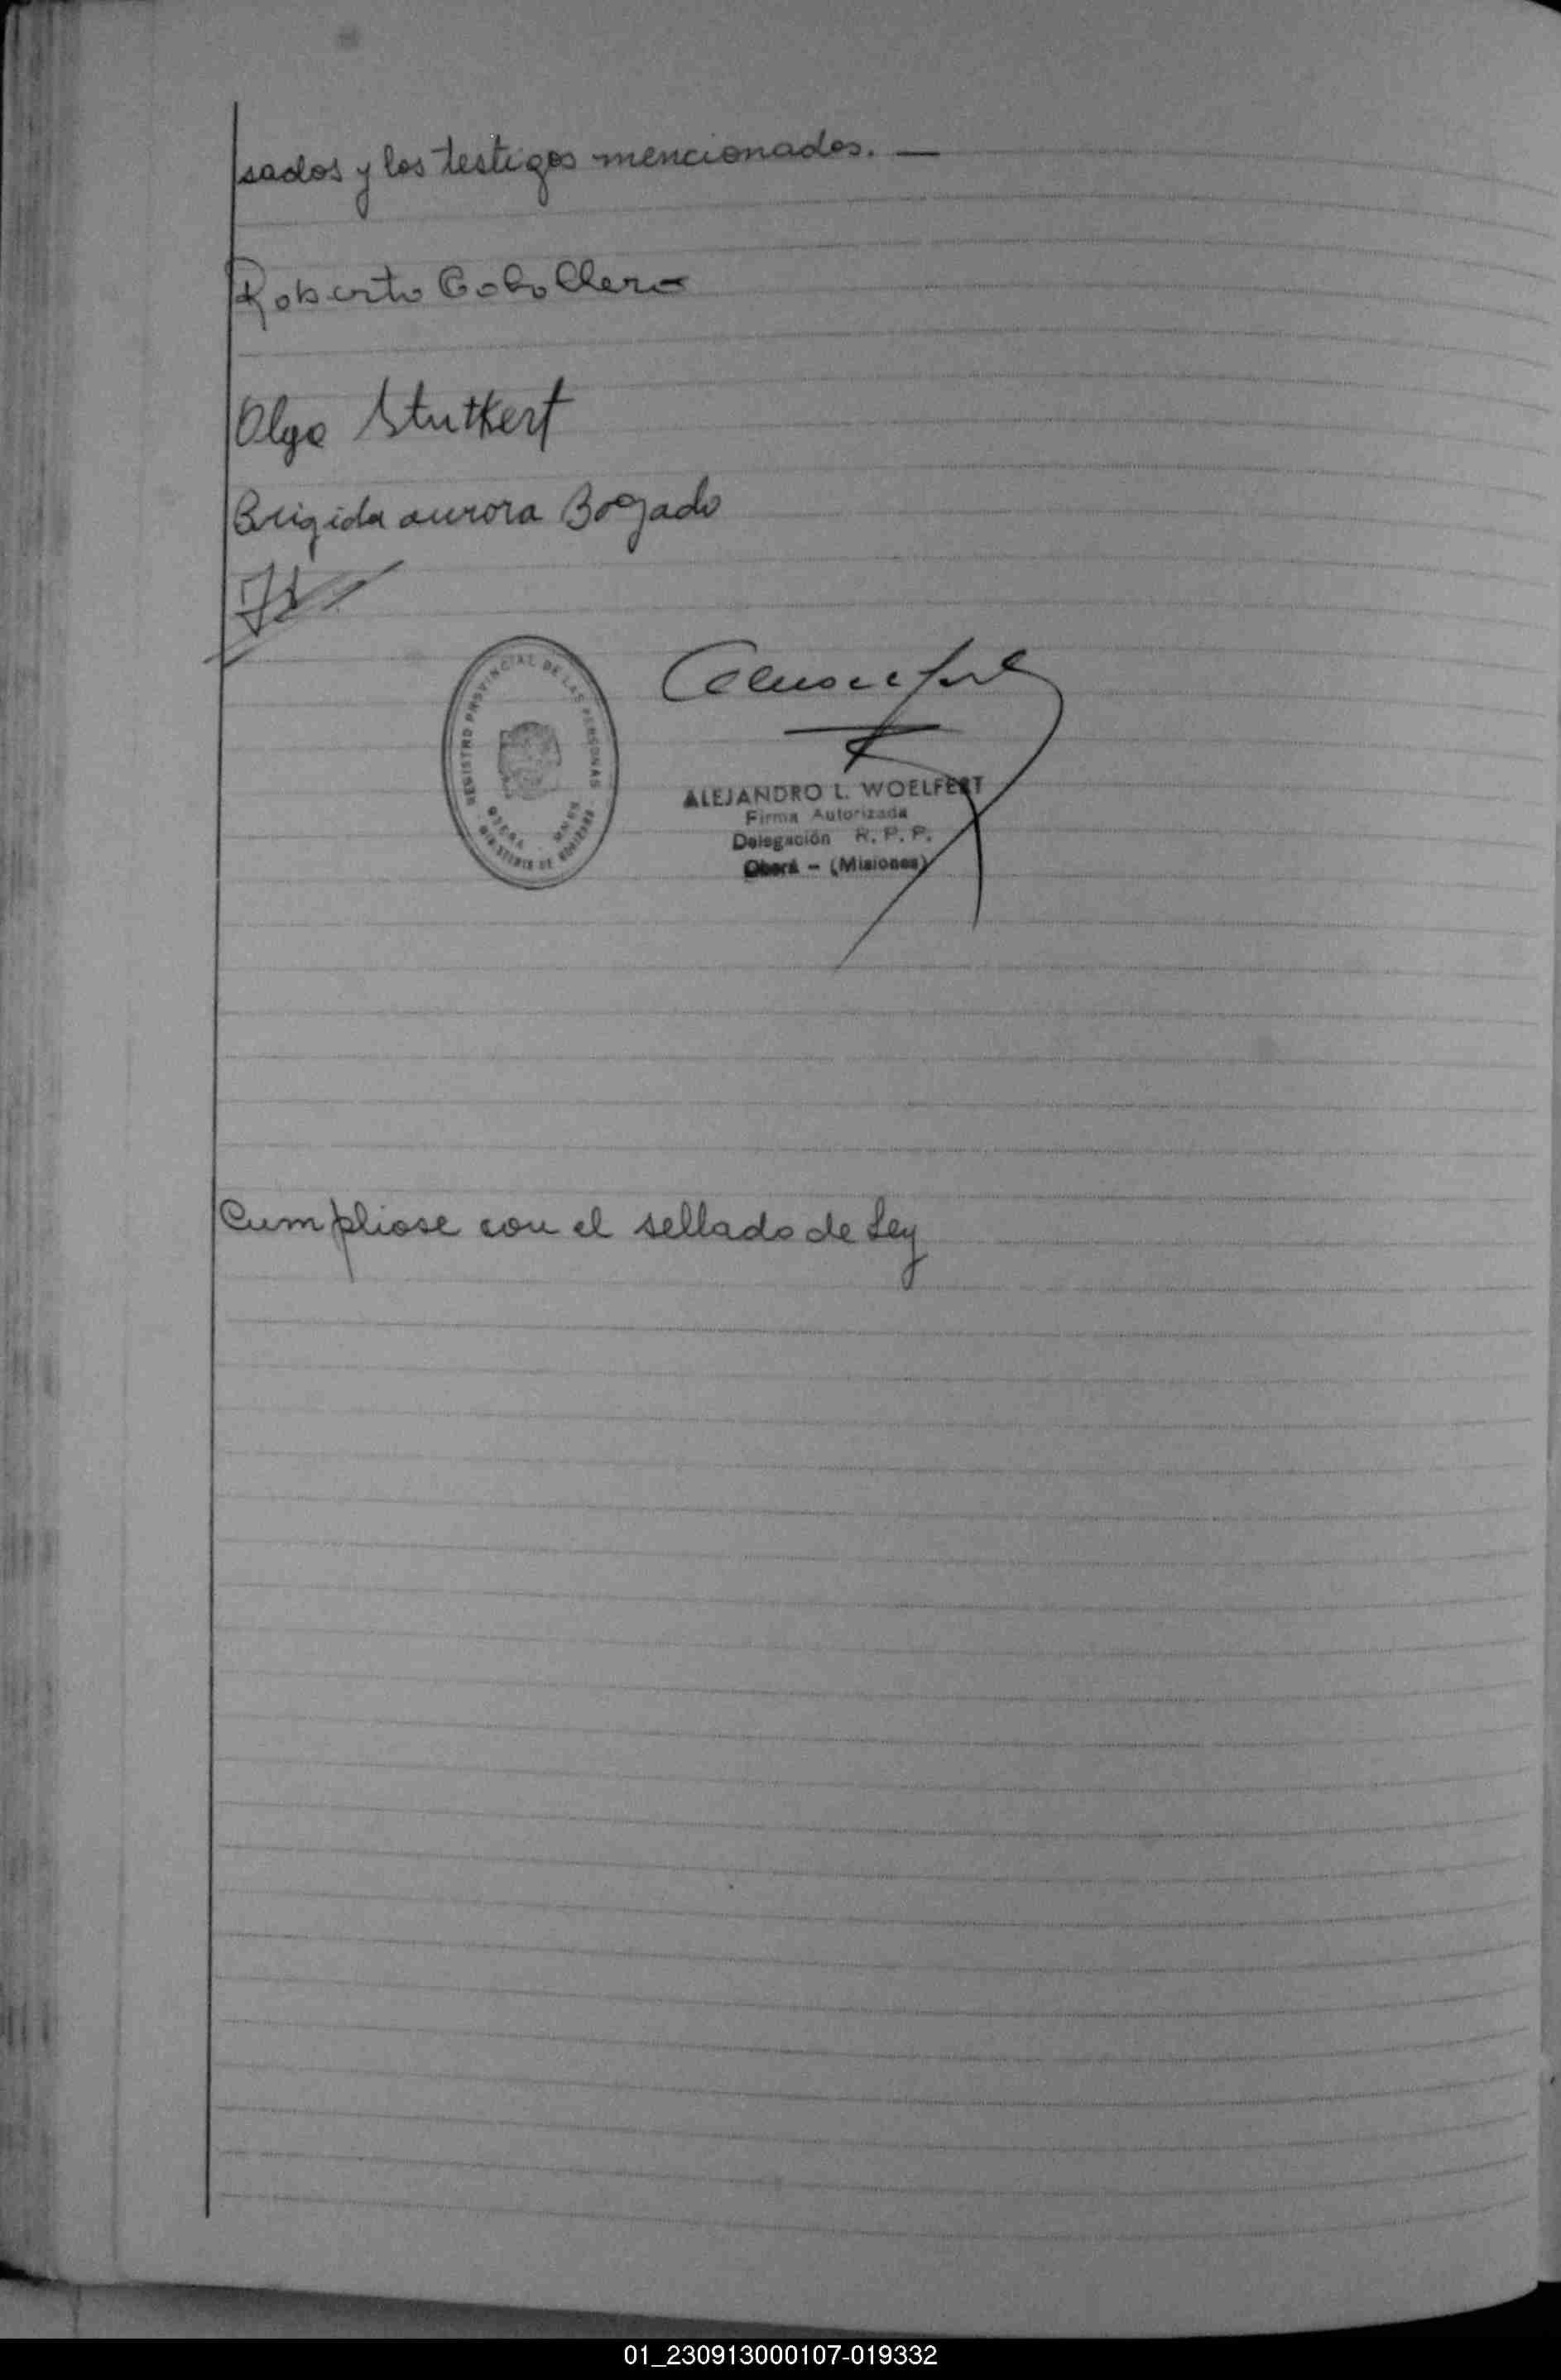 sados y los testigos mencionados. —
Roberto Caballero
Olga Stutkert
Brigida aurora Bogado
REGISTRO PROVINCIAL DE LAS PERSONAS
MINISTERIO DE GOBIERNO
ALEJANDRO L. WOELFERT
Firma Autorizada
Delegación R. P. P.
Oberá - (Misiones)
Cumpliose con el sellado de Ley
01_230913000107-019332